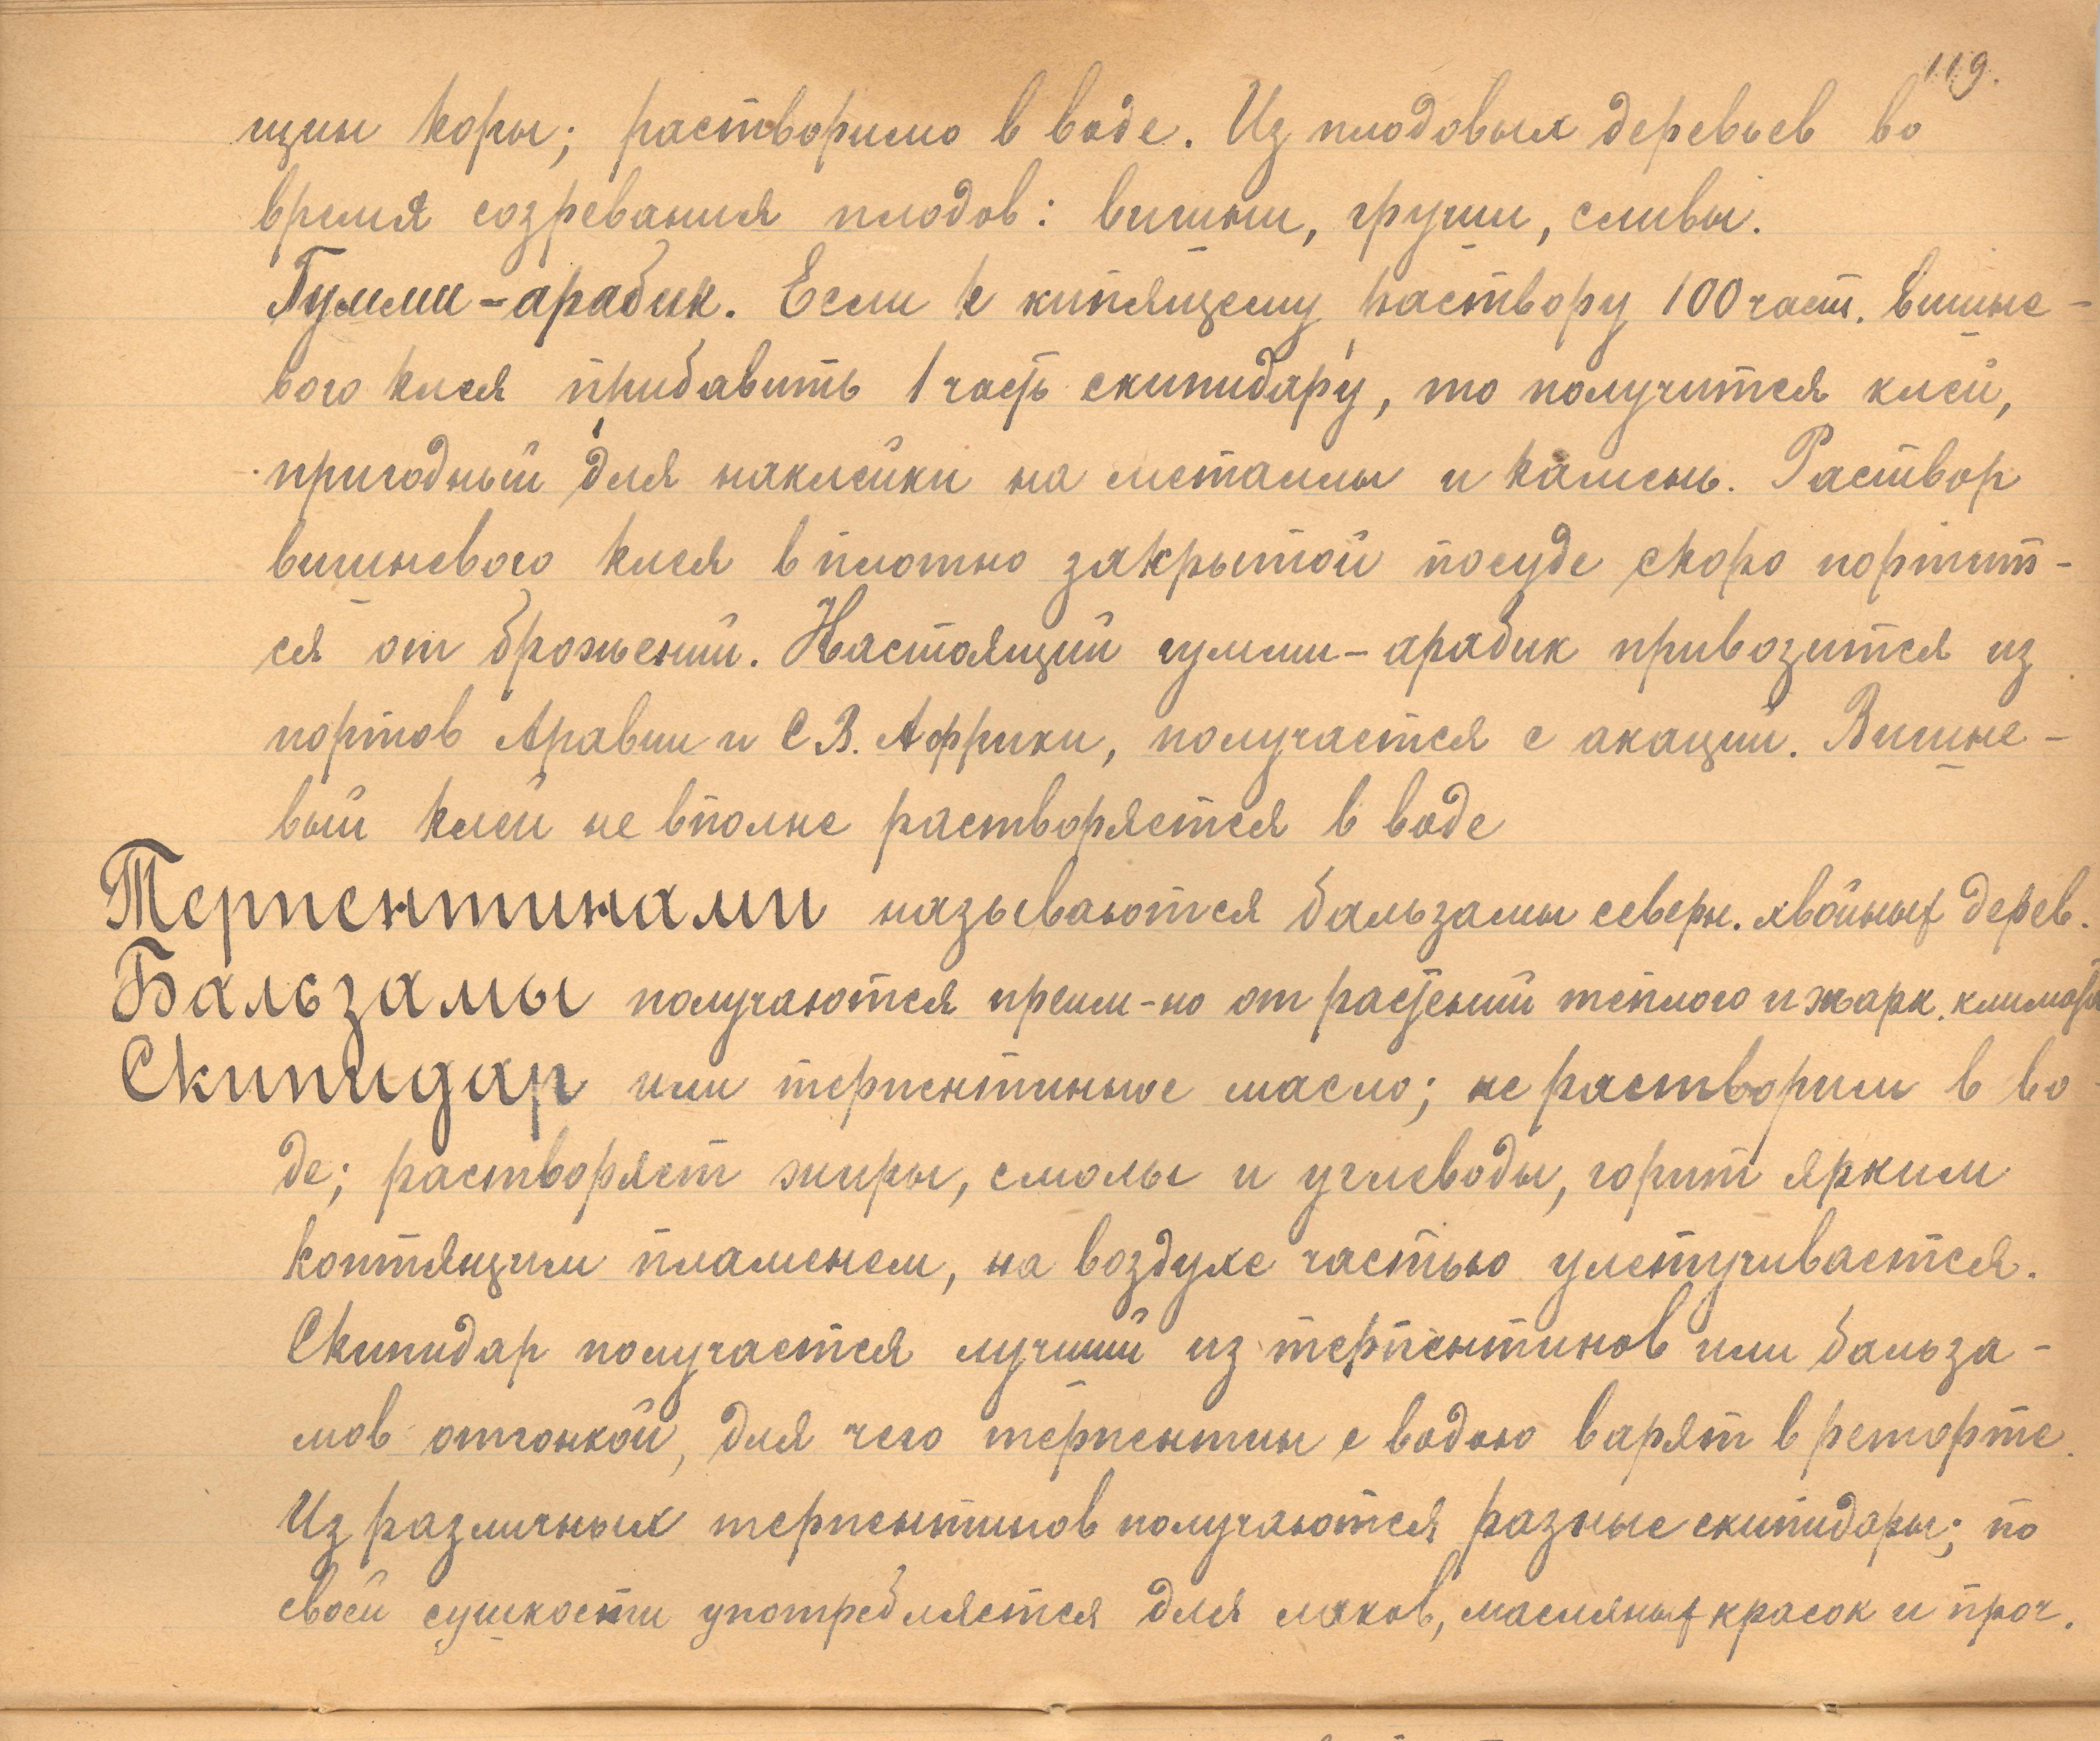 119.
щин коры; растворимо в воде. Из плодовых деревьев во
время созревания плодов: вишни, груши, сливы.
Гумми-арабик. Если к кипящему раствору 100 част. вишне-
вого клея прибавить 1 часть скипидару, то получится клей,
пригодный для наклейки на металлы и камень. Раствор
вишневого клея в плотно закрытой посуде скоро портит-
ся от брожений. Настоящий гумми-арабик привозится из
портов Аравии и С В. Африки, получается с акации. Вишне-
вый клей не вполне растворяется в воде
Терпентинами называются бальзамы северн. хвойных дерев.
Бальзамы получаются преим-но от растений теплого и жарк. климата
Скипидар или терпентинное масло; не растворим в во
де; растворяет жиры, смолы и углеводы, горит ярким
коптящим пламенем, на воздухе частью улетучивается.
Скипидар получается лучший из терпентинов или бальза-
мов отгонкой, для чего терпентин с водою варят в реторте.
Из различных терпентинов получаются разные скипидары; по
своей сушкости употребляется для лаков, масляных красок и проч.